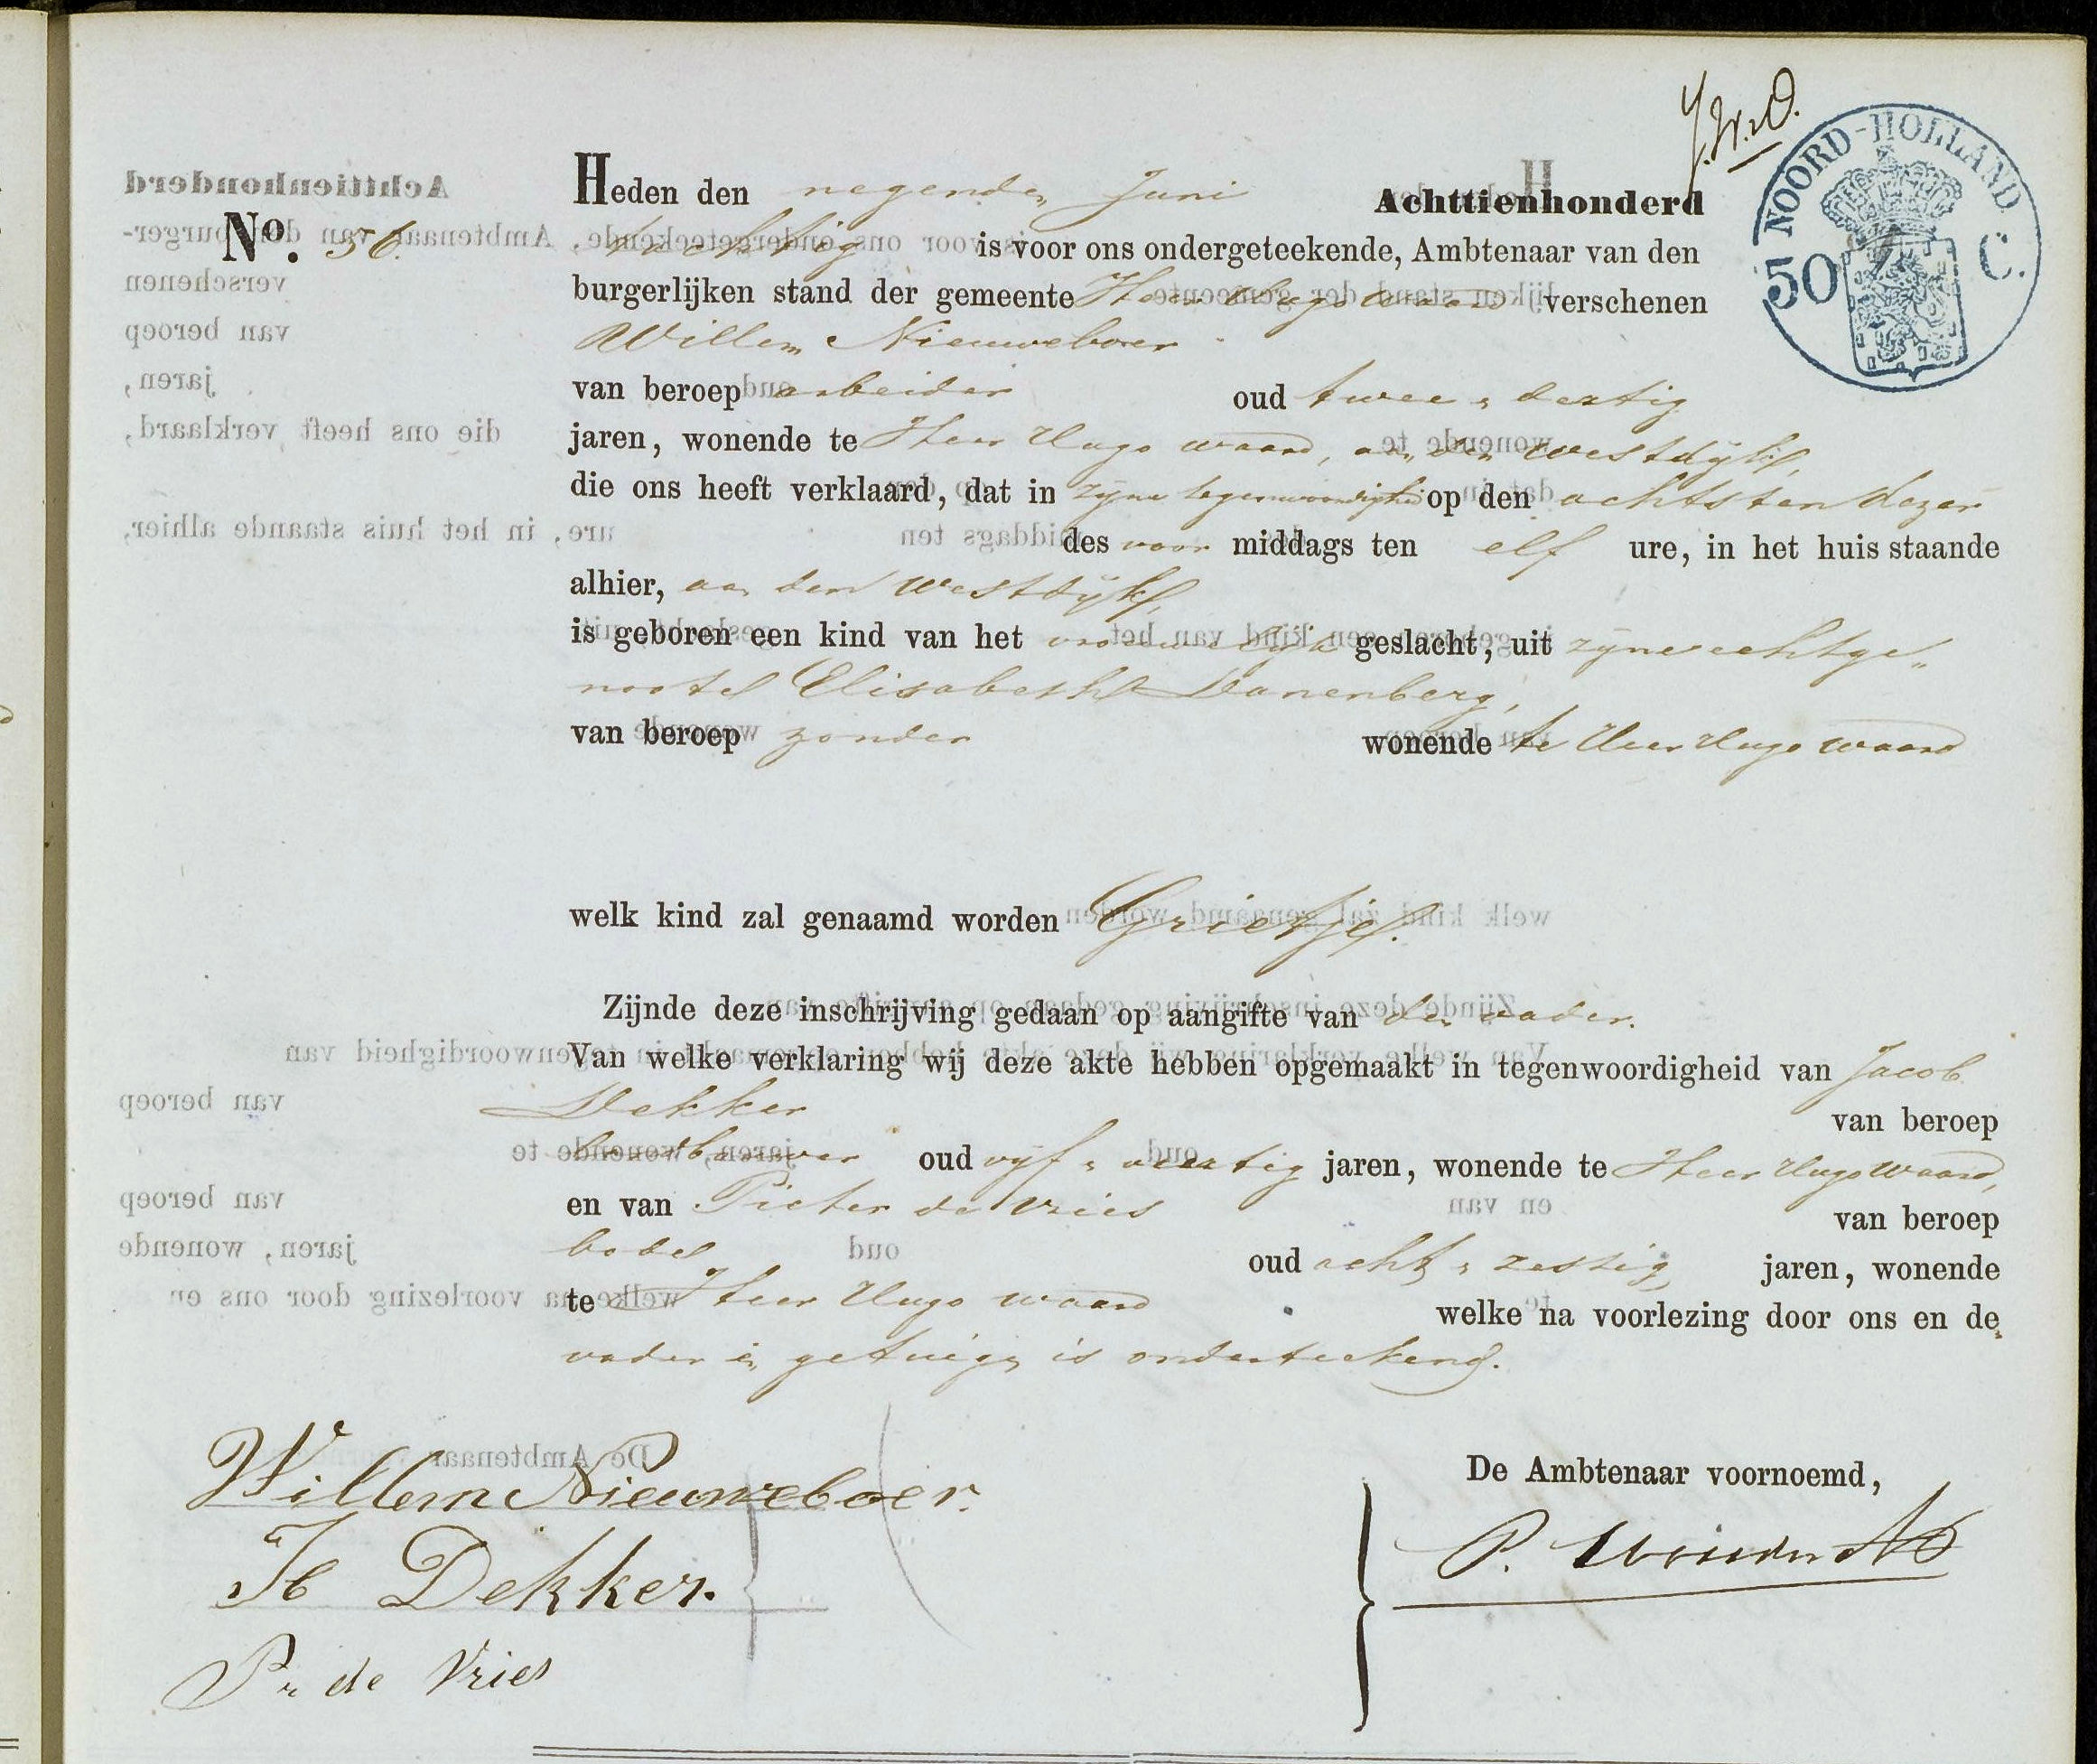 NOORD-HOLLAND
50 C.
Heden den negenden Juni Achttienhonderd
No. 56. tachtig is voor ons ondergeteekende, Ambtenaar van den
burgerlijken stand der gemeente Heer Hugo waard verschenen
Willem Nieuweboer
van beroep arbeider oud twee & dertig
jaren, wonende te Heer Hugo waard, aan den Westdijk,
die ons heeft verklaard, dat in zijne tegenwoordigheid op den achtsten dezer
des voor middags ten elf ure, in het huis staande
alhier, aan den Westdijk,
is geboren een kind van het vrouwelijk geslacht, uit zijne echtge„
noote Elisabeth Danenberg,
van beroep zonder wonende te Heer Hugo waard
welk kind zal genaamd worden Grietje.
Zijnde deze inschrijving gedaan op aangifte van den vader.
Van welke verklaring wij deze akte hebben opgemaakt in tegenwoordigheid van Jacob
Dekker van beroep
bouwer oud vijf & veertig jaren, wonende te Heer Hugo waard,
en van Pieter de Vries van beroep
bode oud acht & zestig jaren, wonende
te Heer Hugo waard welke na voorlezing door ons en de
vader en getuigen is onderteekend.
De Ambtenaar voornoemd,
Willem Nieuweboer.
Jb Dekker.
Pr de Vries
P.